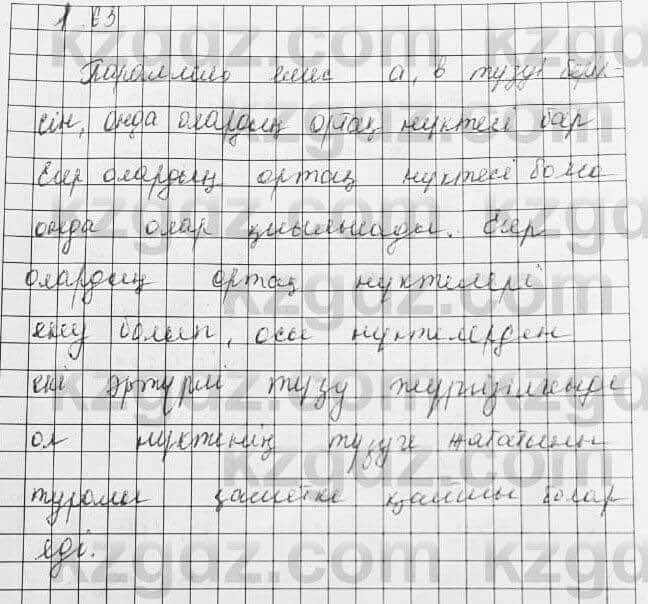 1.63
Параллель емес a, b түзуі беріл-
сін, онда олардың ортақ нүктесі бар.
Егер олардың ортақ нүктесі болса
онда олар қиылысады. Егер
олардың ортақ нүктелері
екеу болып, осы нүктелерден
екі әртүрлі түзу жүргізілгенде
ол нүктенің түзуге жататыны
туралы қайшы болар
еді.
kzgdz.com
kzgdz.com
kzgdz.com
kzgdz.com
kzgdz.com